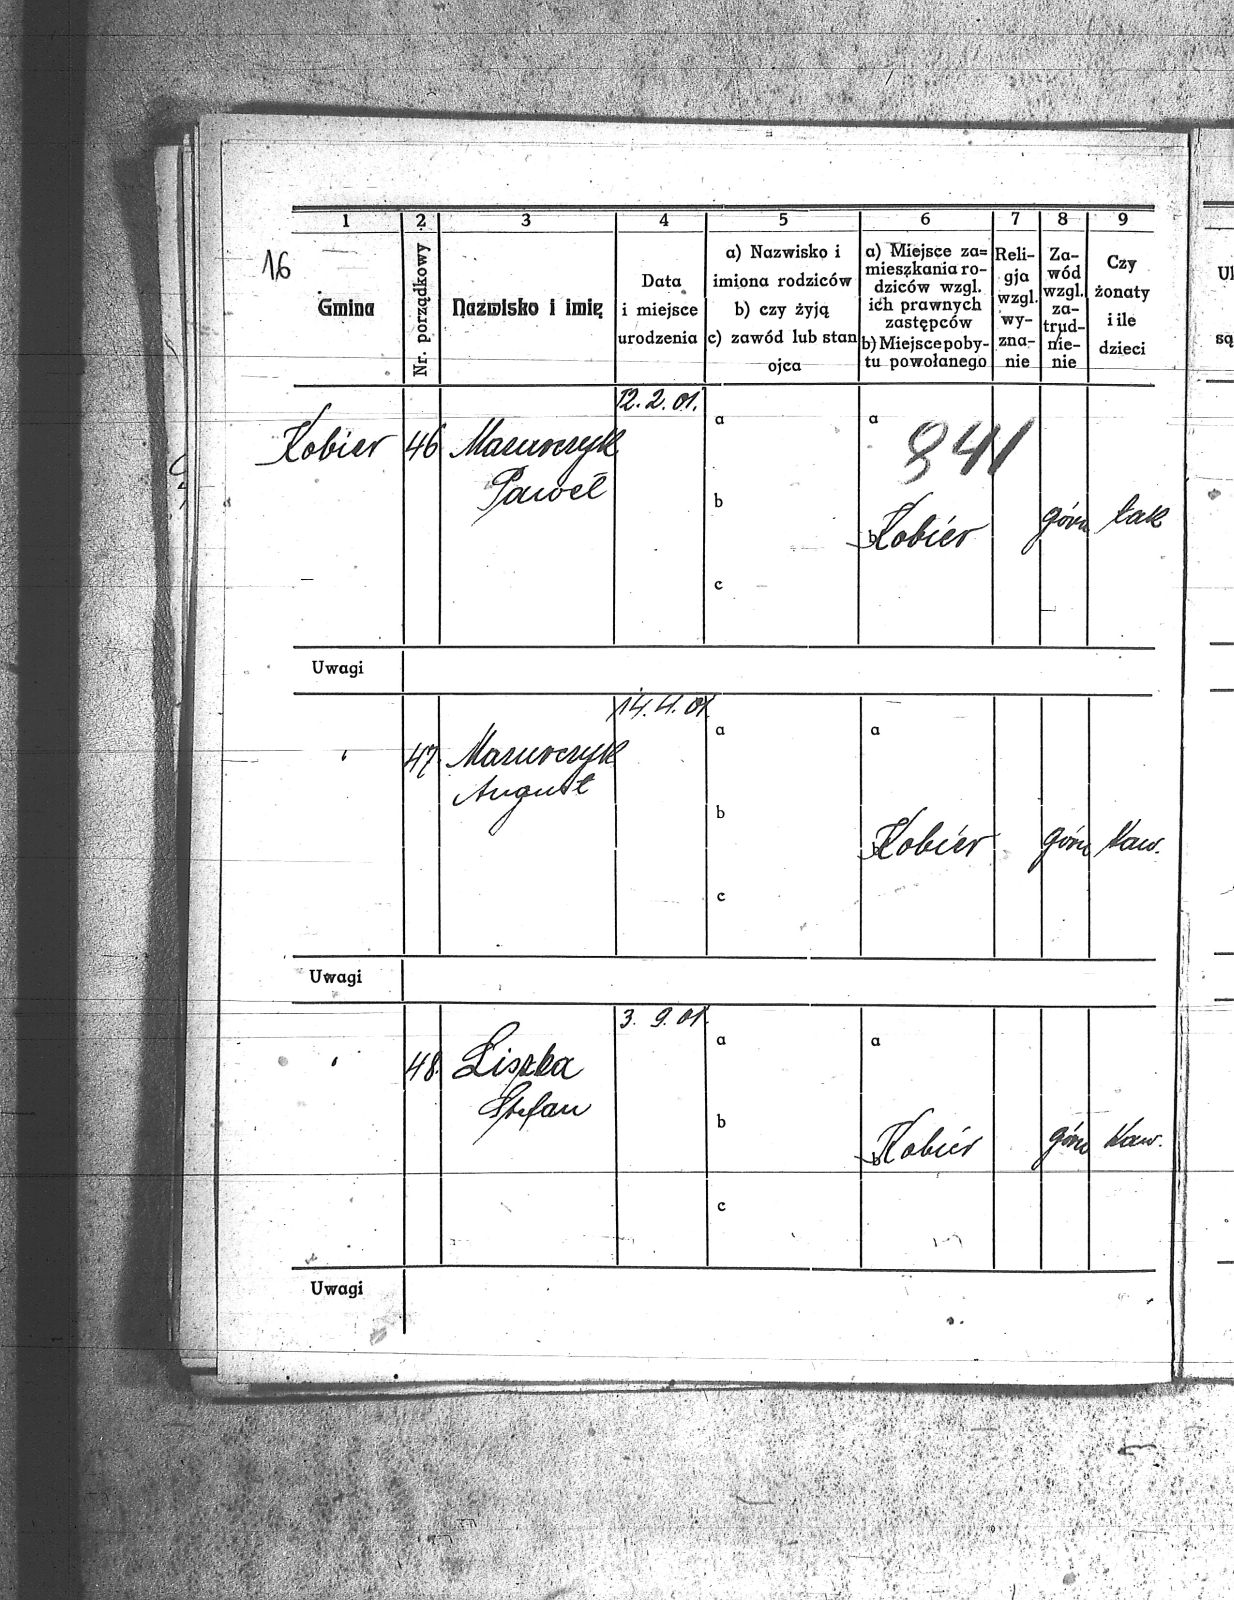 16
1 2 3 4 5 6 7 8 9
Gmina
Nr. porządkowy
Nazwisko i imię
Data
i miejsce
urodzenia
a) Nazwisko i
imiona rodziców
b) czy żyją
c) zawód lub stan
ojca
a) Miejsce za=
mieszkania ro-
dziców wzgl.
ich prawnych
zastępców
b) Miejsce poby-
tu powołanego
Reli-
gja
wzgl.
wy-
zna-
nie
Za-
wód
wzgl.
za-
trud-
nie-
nie
Czy
żonaty
i ile
dzieci
12.2.01.
a a
Kobier 46 Mazurczyk
841
Pawеł
b
b Kobiér górn tak
c
Uwagi
14.4.01.
a a
47. Mazurczyk
August
b
b Kobiér górn kaw.
c
Uwagi
3. 9. 01.
a a
48. Liszka
Stefan
b
b Kobiér górn kaw.
c
Uwagi